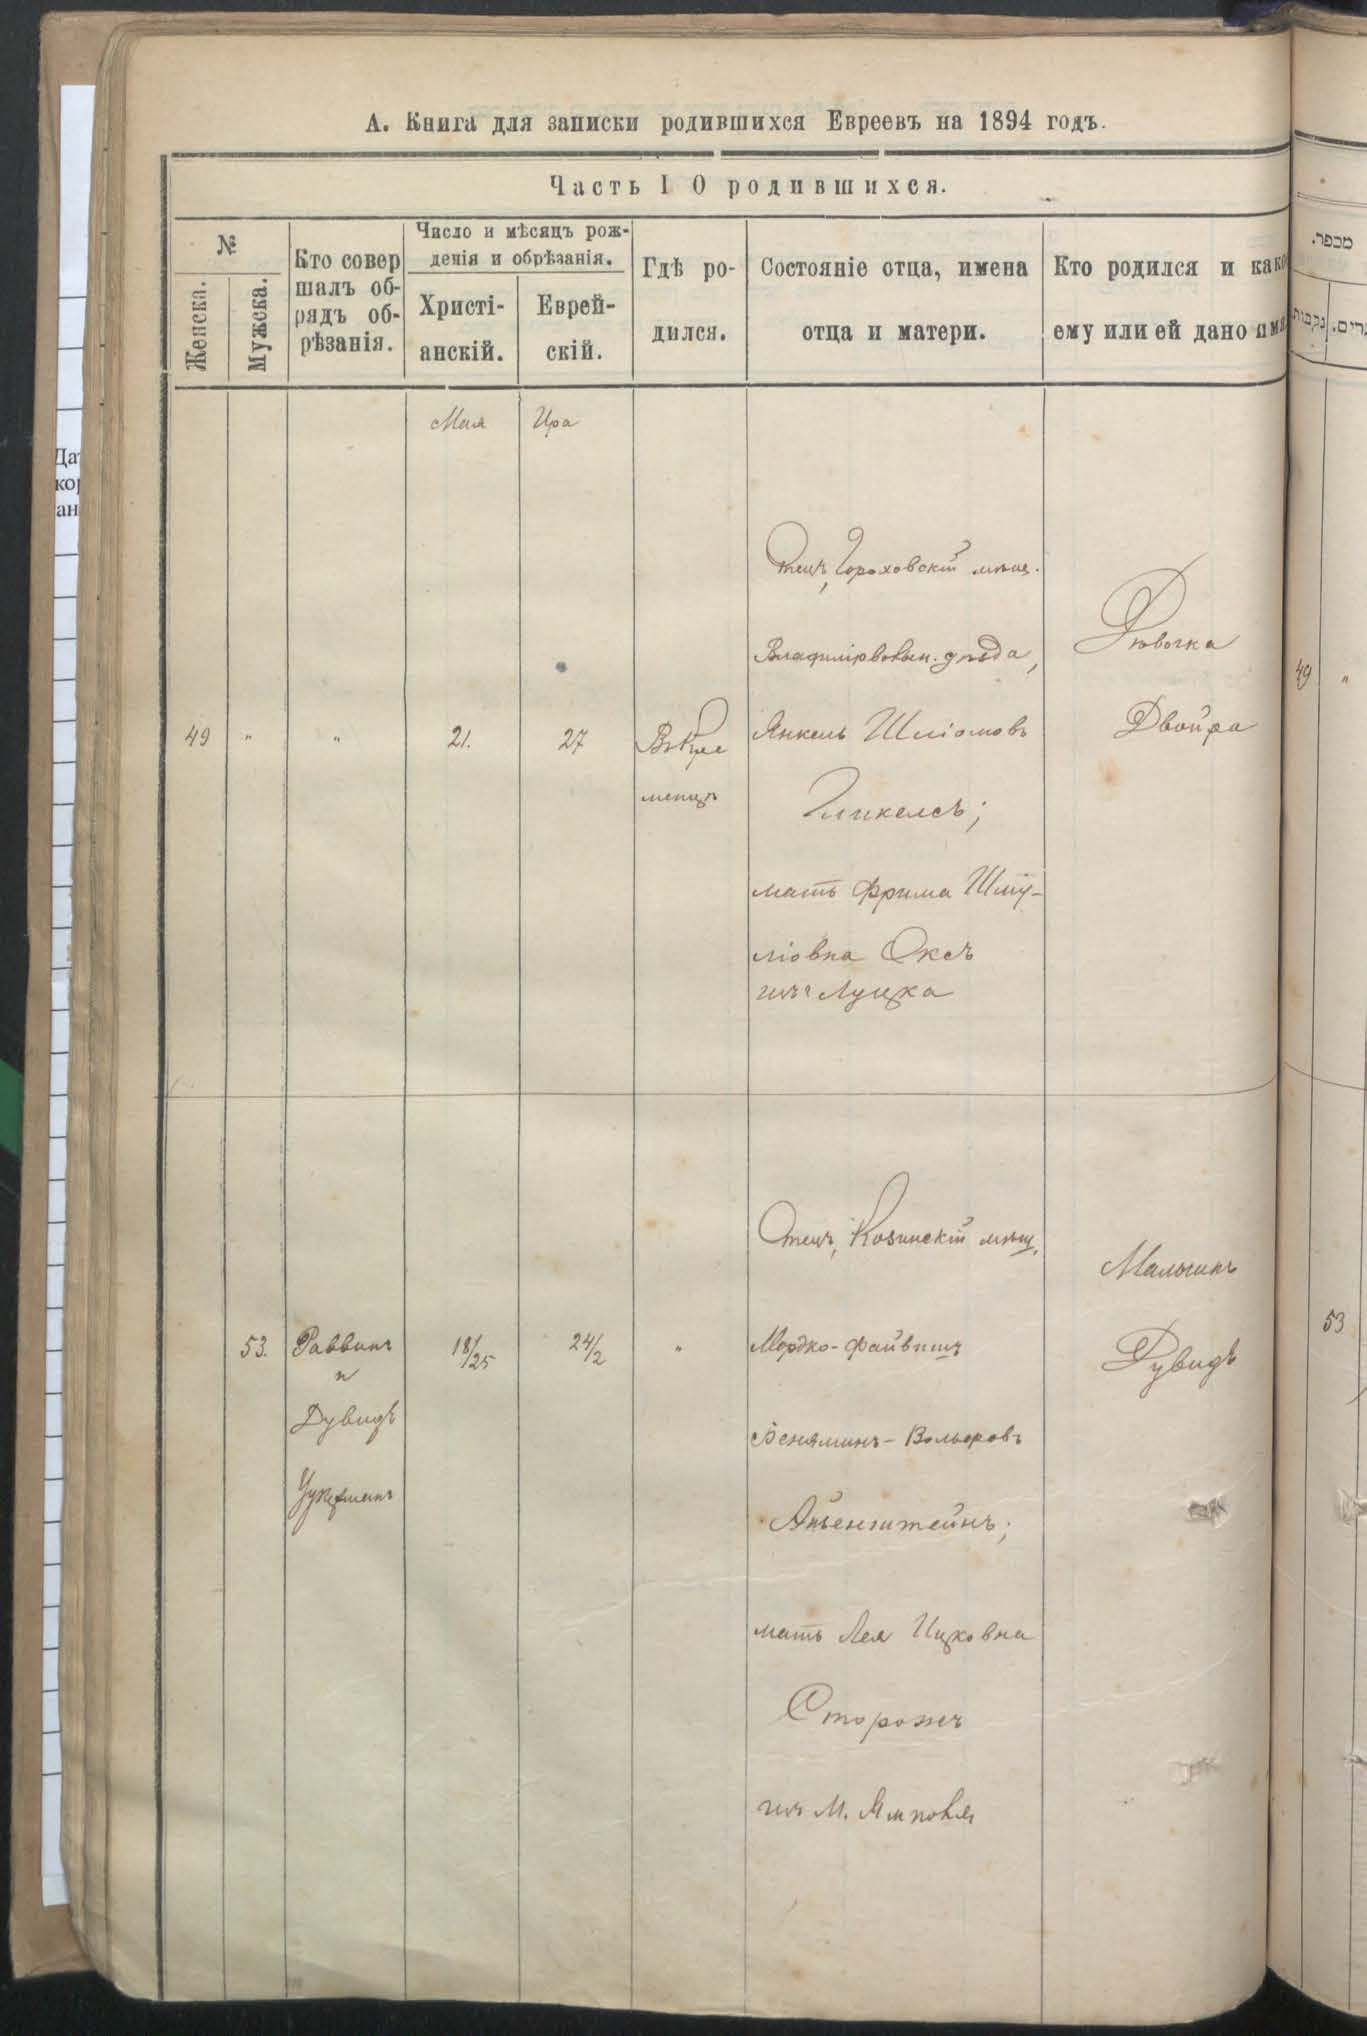 А. Книга для записки родившихся Евреевъ на 1894 годъ.
Часть I О родившихся.
№
Женска.
Мужска.
Кто совер
шалъ об-
рядъ об-
рѣзанія.
Число и мѣсяцъ рож-
денія и обрѣзанія.
Христі-
анскій.
Еврей-
скій.
Гдѣ ро-
дился.
Состояніе отца, имена
отца и матери.
Кто родился и како
ему или ей дано имя
Мая
Ира
49 " " 21. 27
Въ Кре
менцѣ
Отецъ, Гороховскій мѣщ.
Владимірволын. уѣзда,
Янкель Шліомовъ
Гликелсъ;
мать Фрима Шму-
ліовна Оксъ
изъ Луцка
Дѣвочка
Двойра
53.
Раввинъ
и
Дувидъ
Цукерманъ
18/25
24/2
"
Отецъ, Козинскій мѣщ.
Мордко-Файвишъ
Беняминъ-Вольфовъ
Айзенштейнъ;
мать Лея Ицковна
Сторожъ
изъ М. Ямполя
Мальчикъ
Дувидъ
מספר.
נקבות
49 "
53